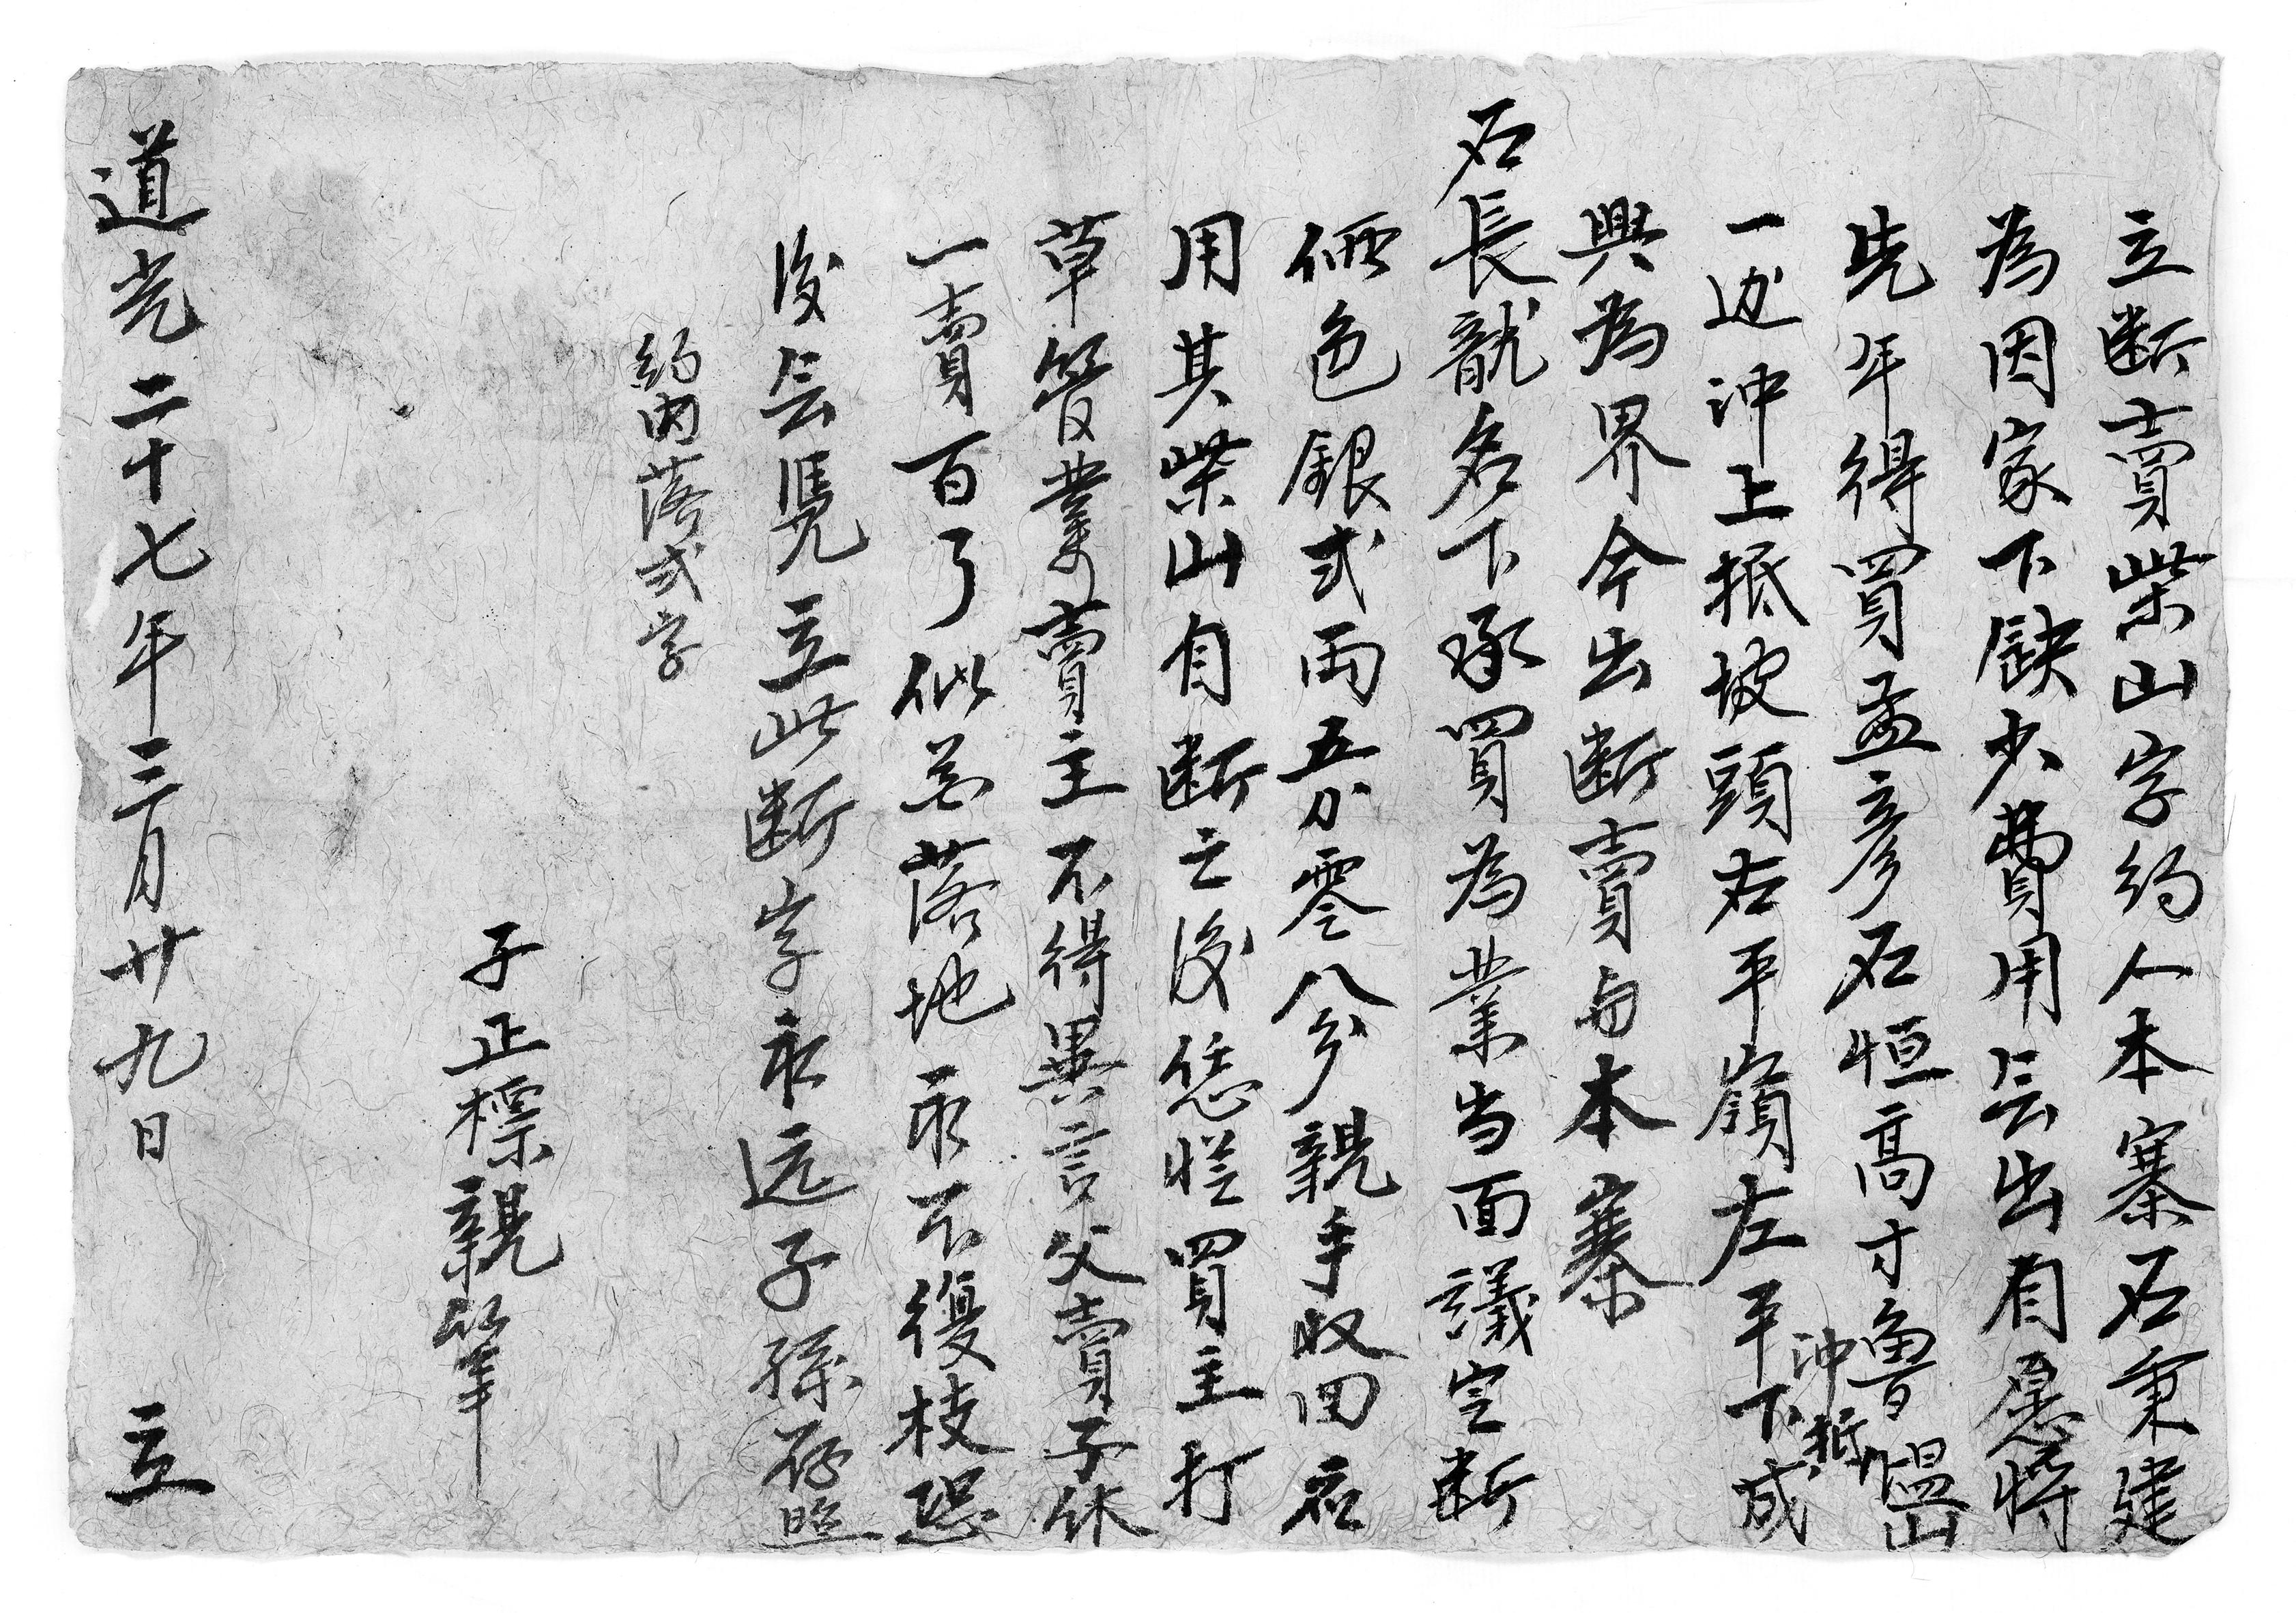 立断賣柴山字約人本寨石秉建
為因家下缺少費用无出自愿將
先年得買孟彦石恒高寸魯山
一边沖上抵坡頭右平嶺左平下成
沖抵
興為界今出断賣与本寨
石長龍名下承買為業当面議定断
價色銀弍両五分零八分親手収回応
用其柴山自断之後恁從買主打
草管業賣主不得異言父賣子休
一賣百了似若落地永不復枝恐
後无凭立此断字永远子孫存照
約内落弍字
子正標親筆
道光二十七年三月廿九日 立